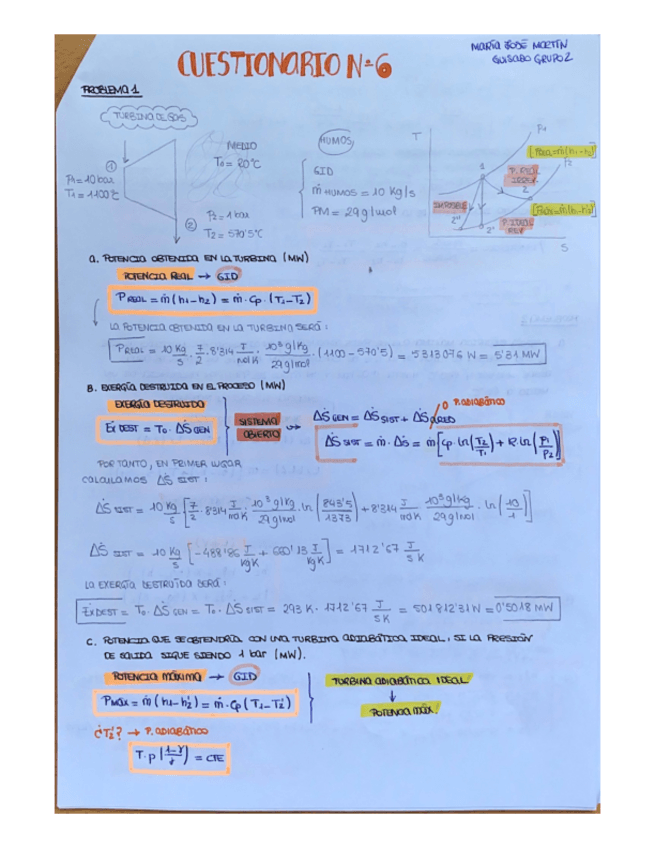 MARÍA JOSÉ MARTÍN
GUISADO GRUPO 2
CUESTIONARIO Nº6
PROBLEMA 1
TURBINA DE GAS
P1 = 10 bar
T1 = 1100°C
①
MEDIO
T0 = 20°C
P2 = 1 bar
T2 = 570'5°C
②
HUMOS
GID
ṁ HUMOS = 10 Kg/s
PM = 29 g/mol
T
P1
PREAL = ṁ(h1-h2)
P2
1
P. REAL
IRREV.
2
IMPOSIBLE
2''
2'
P. IDEAL
REV
S
a. POTENCIA OBTENIDA EN LA TURBINA (MW)
POTENCIA REAL → GID
P REAL = ṁ(h1-h2) = ṁ·Cp·(T1-T2)
LA POTENCIA OBTENIDA EN LA TURBINA SERÁ:
PREAL = 10 Kg/s · 7/2 · 8'314 J/mol K · 10³ g/Kg / 29 g/mol · (1100 - 570'5) = 5313076 W = 5'31 MW
B. EXERGÍA DESTRUIDA EN EL PROCESO (MW)
EXERGÍA DESTRUIDA
Ėx DEST = T0 · ΔṠ GEN
SISTEMA
ABIERTO
0 P. ADIABÁTICO
ΔṠ GEN = ΔṠ SIST + ΔṠ ALRED
ΔṠ SIST = ṁ·ΔS = ṁ[Cp·ln(T2/T1) + R ln(P1/P2)]
POR TANTO, EN PRIMER LUGAR
CALCULAMOS ΔṠ SIST:
ΔṠ SIST = 10 Kg/s [7/2 · 8'314 J/mol K · 10³ g/Kg / 29 g/mol · ln(843'5/1373) + 8'314 J/mol K · 10³ g/Kg / 29 g/mol · ln(10/1)]
ΔṠ SIST = 10 Kg/s [-488'86 J/Kg K + 660'13 J/Kg K] = 1712'67 J/s K
LA EXERGÍA DESTRUÍDA SERÁ:
Ėx DEST = T0 · ΔṠ GEN = T0 · ΔṠ SIST = 293 K · 1712'67 J/s K = 501812'31 W = 0'5018 MW
C. POTENCIA QUE SE OBTENDRÍA CON UNA TURBINA ADIABÁTICA IDEAL, SI LA PRESIÓN
DE SALIDA SIGUE SIENDO 1 bar (MW).
POTENCIA MÁXIMA → GID
Pmáx = ṁ(h1-h2') = ṁ·Cp(T1-T2')
TURBINA ADIABÁTICA IDEAL
↓
POTENCIA MÁX.
¿T2'? → P. ADIABÁTICO
T·P(1-γ/γ) = CTE